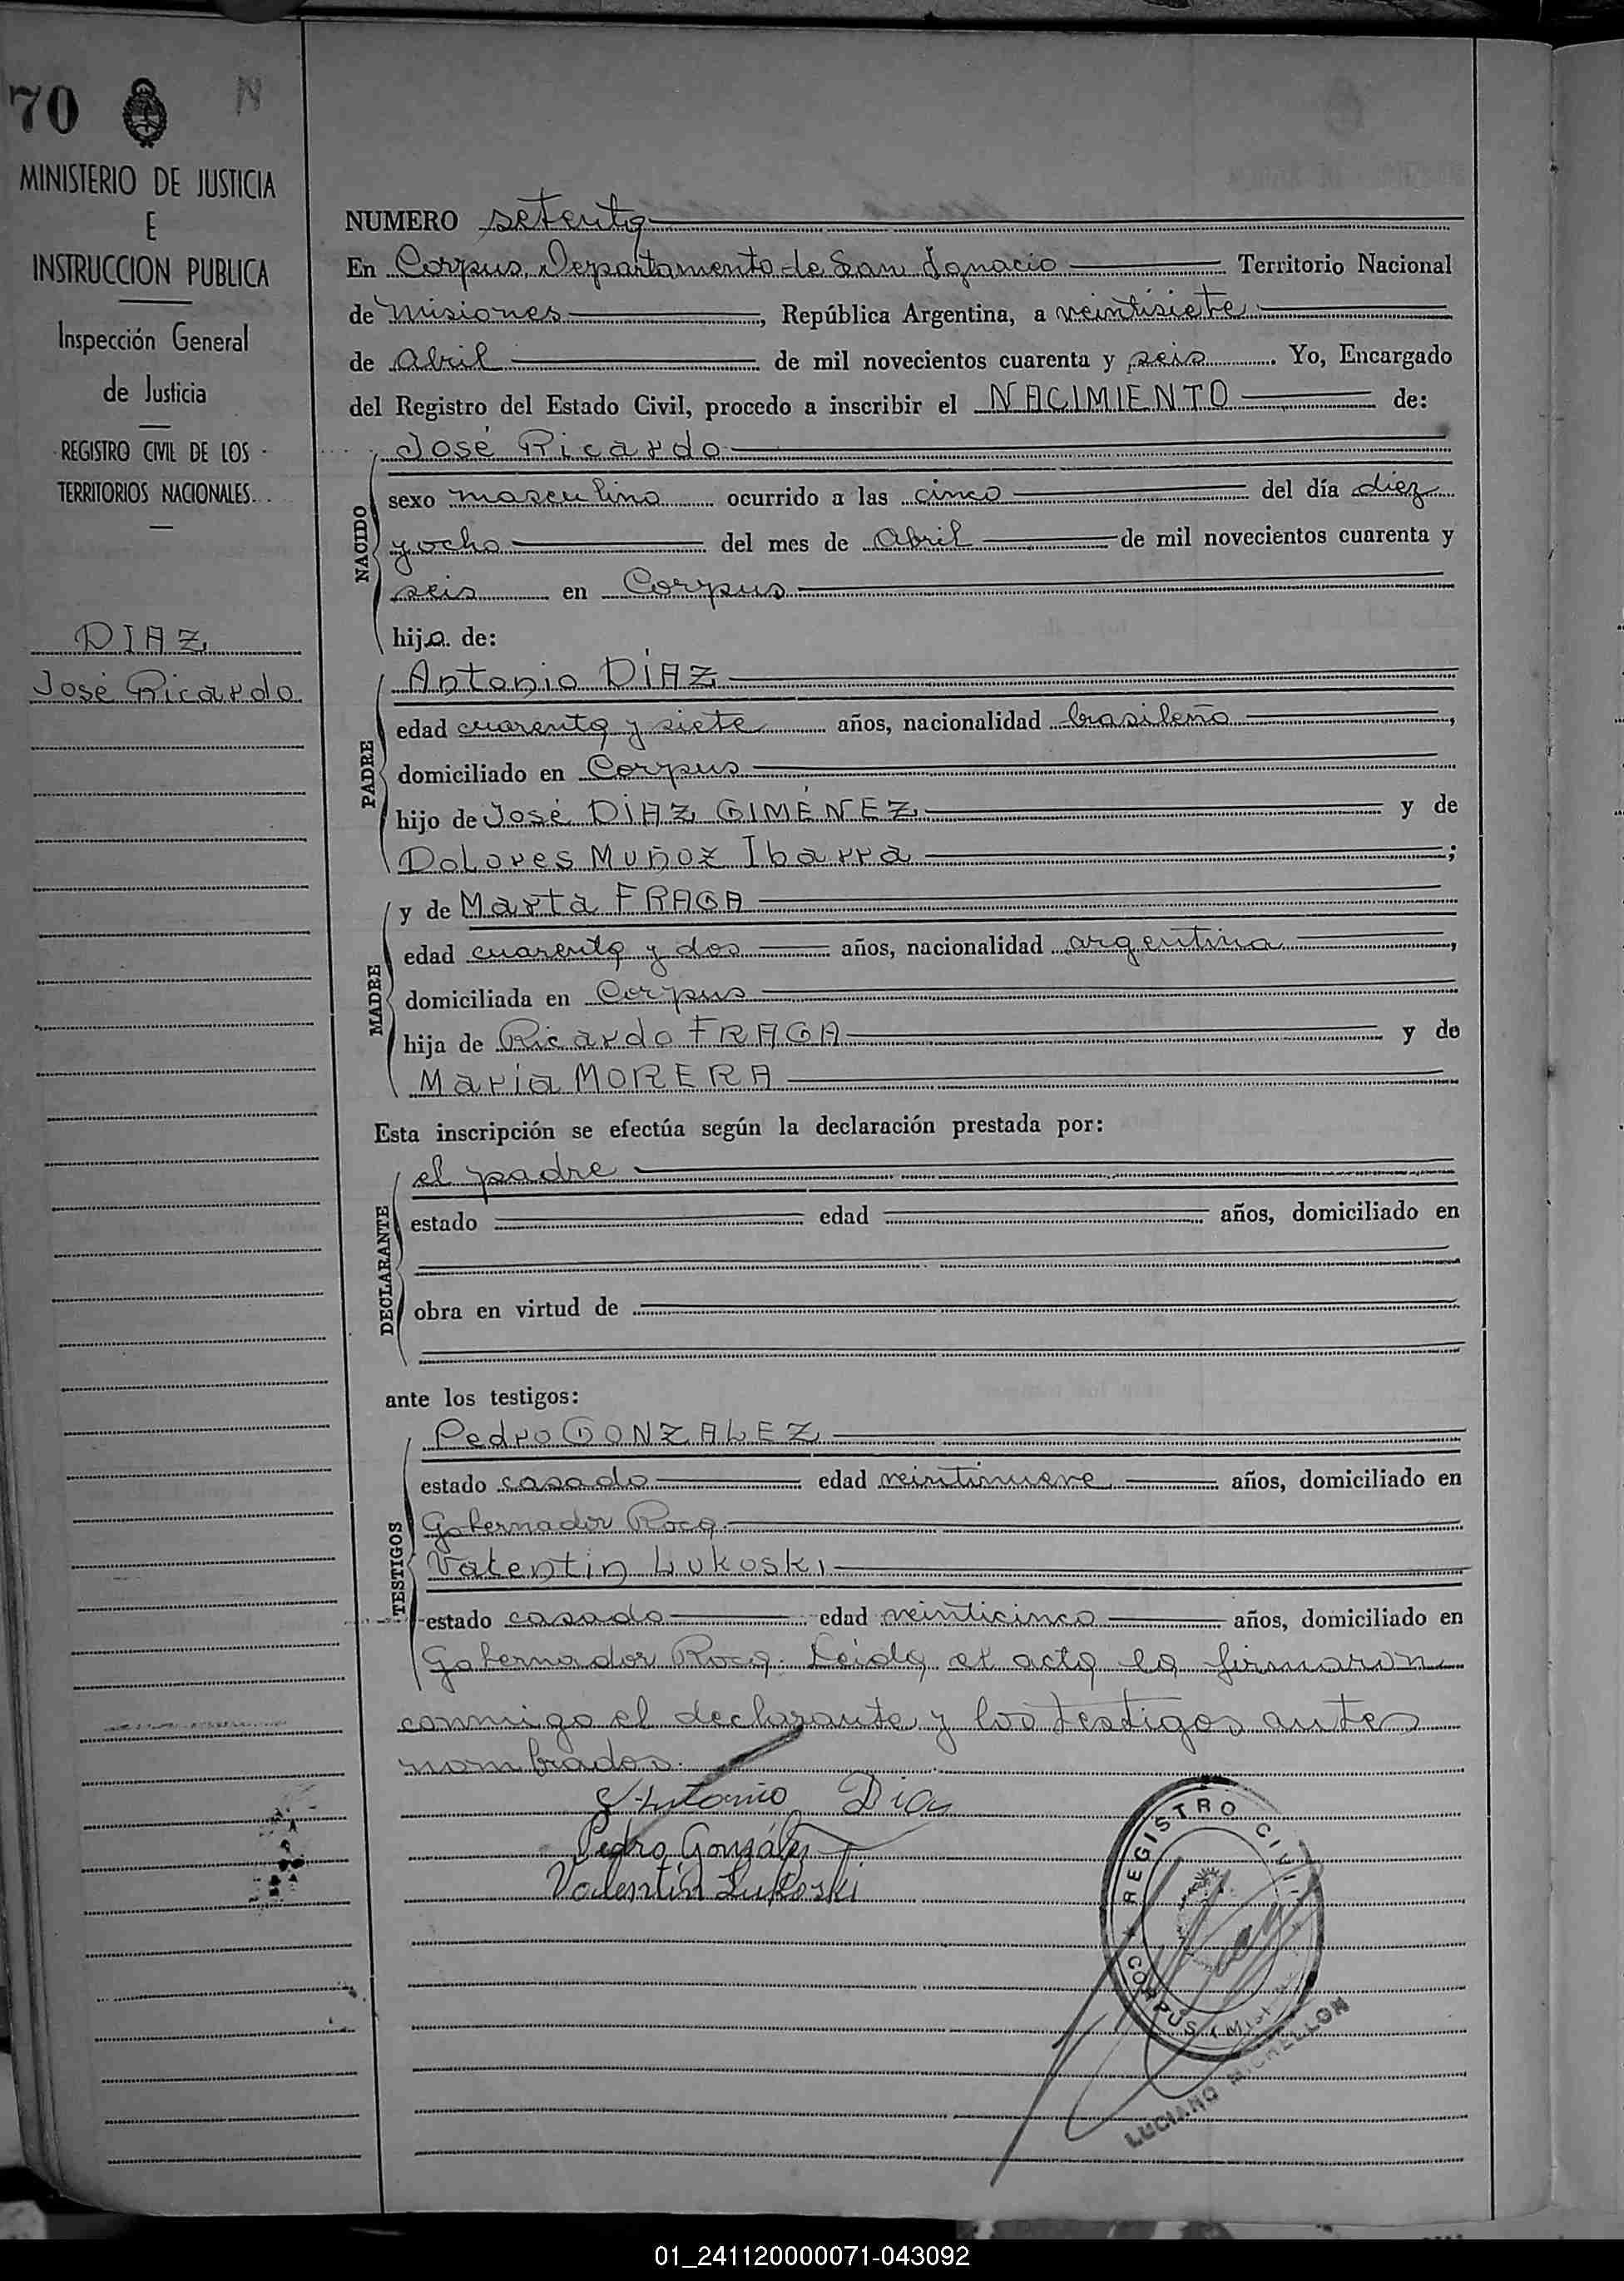 70 N
MINISTERIO DE JUSTICIA
E
INSTRUCCION PUBLICA
Inspección General
de Justicia
REGISTRO CIVIL DE LOS
TERRITORIOS NACIONALES
DIAZ
José Ricardo
NUMERO setenta
En Corpus, Departamento de San Ignacio Territorio Nacional
de Misiones, República Argentina, a veintisiete
de Abril de mil novecientos cuarenta y seis. Yo, Encargado
del Registro del Estado Civil, procedo a inscribir el NACIMIENTO de:
NACIDO
José Ricardo
sexo masculino ocurrido a las cinco del día diez
yocho del mes de Abril de mil novecientos cuarenta y
seis en Corpus
hijo de:
PADRE
Antonio DÍAZ
edad cuarenta y siete años, nacionalidad brasileño,
domiciliado en Corpus
hijo de José DÍAZ GIMÉNEZ y de
Dolores Muñoz Ibarra;
MADRE
y de Marta FRAGA
edad cuarenta y dos años, nacionalidad argentina,
domiciliada en Corpus
hija de Ricardo FRAGA y de
María MORERA
Esta inscripción se efectúa según la declaración prestada por:
DECLARANTE
el padre
estado edad años, domiciliado en
obra en virtud de
ante los testigos:
TESTIGOS
Pedro GONZALEZ
estado casado edad veintinueve años, domiciliado en
Gobernador Roca.
Valentin Lukoski
estado casado edad veinticinco años, domiciliado en
Gobernador Roca. Leida el acta la firmaron
conmigo el declarante y los testigos antes
nombrados.
Antonio Diaz
Pedro González
Valentín Lukoski
REGISTRO CIVIL
CORPUS (Mis.)
LUCIANO MICHELLON
01_241120000071-043092